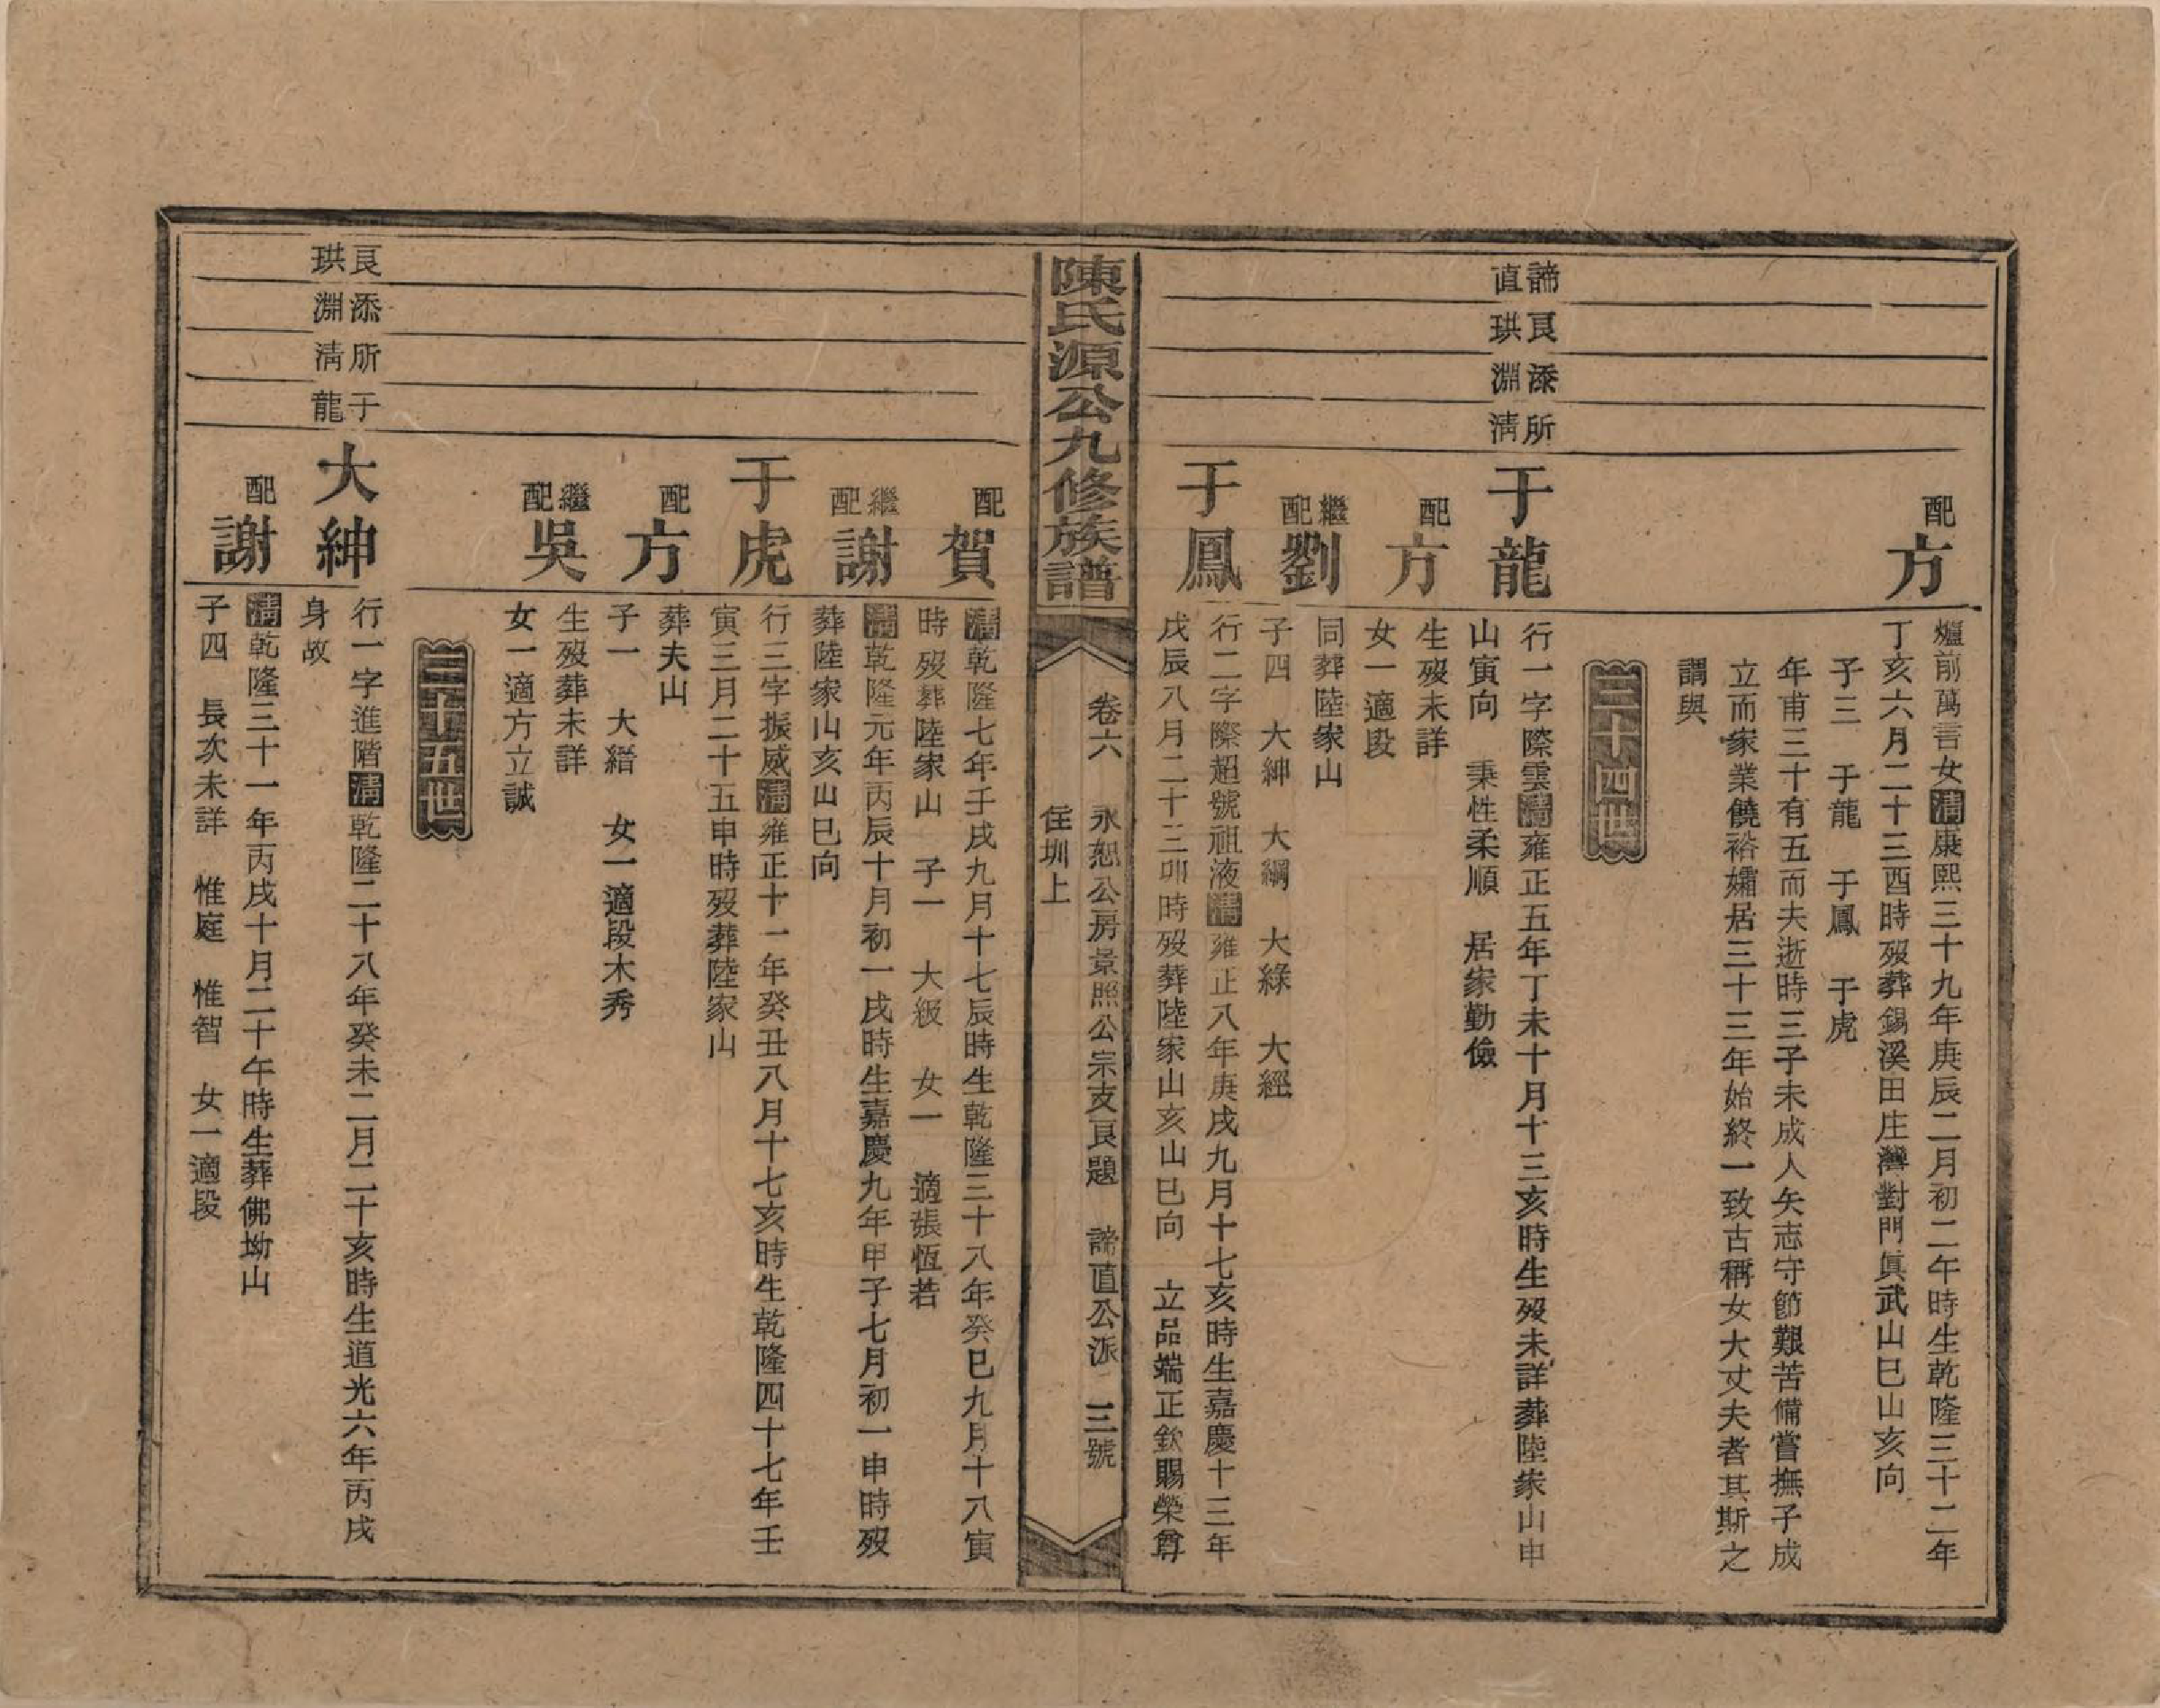 配
方
爐前萬言女清康熙三十九年庚辰二月初二午時生乾隆三十二年
丁亥六月二十三酉時歿葬錫溪田庄灣對門眞武山巳山亥向
子三　于龍　于鳳　于虎
年甫三十有五而夫逝時三子未成人矢志守節艱苦備嘗撫子成
立而家業饒裕孀居三十三年始終一致古稱女大丈夫者其斯之
謂與
三十四世
諦直
艮珙
添淵
所淸
于龍
行一字際雲清雍正五年丁未十月十三亥時生歿未詳葬陸家山申
山寅向　秉性柔順　居家勤儉
配
方
生歿未詳
女一適段
繼配
劉
同葬陸家山
子四　大紳　大綱　大綠　大經
于鳳
行二字際超號祖液清雍正八年庚戌九月十七亥時生嘉慶十三年
戊辰八月二十三卯時歿葬陸家山亥山巳向　立品端正欽賜榮尊
陳氏源公九修族譜
卷六　永恕公房景照公宗支艮題　諦直公派　三號
住圳上
配
賀
清乾隆七年壬戌九月十七辰時生乾隆三十八年癸巳九月十八寅
時歿葬陸家山　子一　大級　女一　適張恆若
繼配
謝
清乾隆元年丙辰十月初一戌時生嘉慶九年甲子七月初一申時歿
葬陸家山亥山巳向
于虎
行三字振威清雍正十一年癸丑八月十七亥時生乾隆四十七年壬
寅三月二十五申時歿葬陸家山
配
方
葬夫山
子一　大縉　女一適段木秀
繼配
吳
生歿葬未詳
女一適方立誠
三十五世
艮珙
添淵
所淸
于龍
大紳
行一字進階清乾隆二十八年癸未二月二十亥時生道光六年丙戌
身故
配
謝
清乾隆三十一年丙戌十月二十午時生葬佛坳山
子四　長次未詳　惟庭　惟智　女一適段